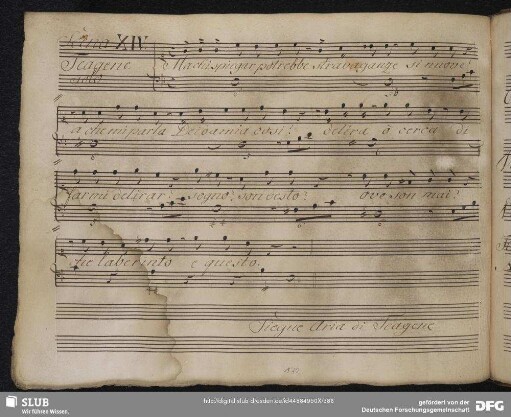 Scena XIV
Teagene Ma chi spiegar potrebbe stravaganze si nuove!
solo
a che mi parla Deidamia così! delira o cerca di
farmi delirar: sogno? son desto? ove son mai?
che laberinto e questo.
Siegue Aria di Teagene
SLUB
Wir führen Wissen.
gefördert von der
Deutschen Forschungsgemeinschaft
DFG